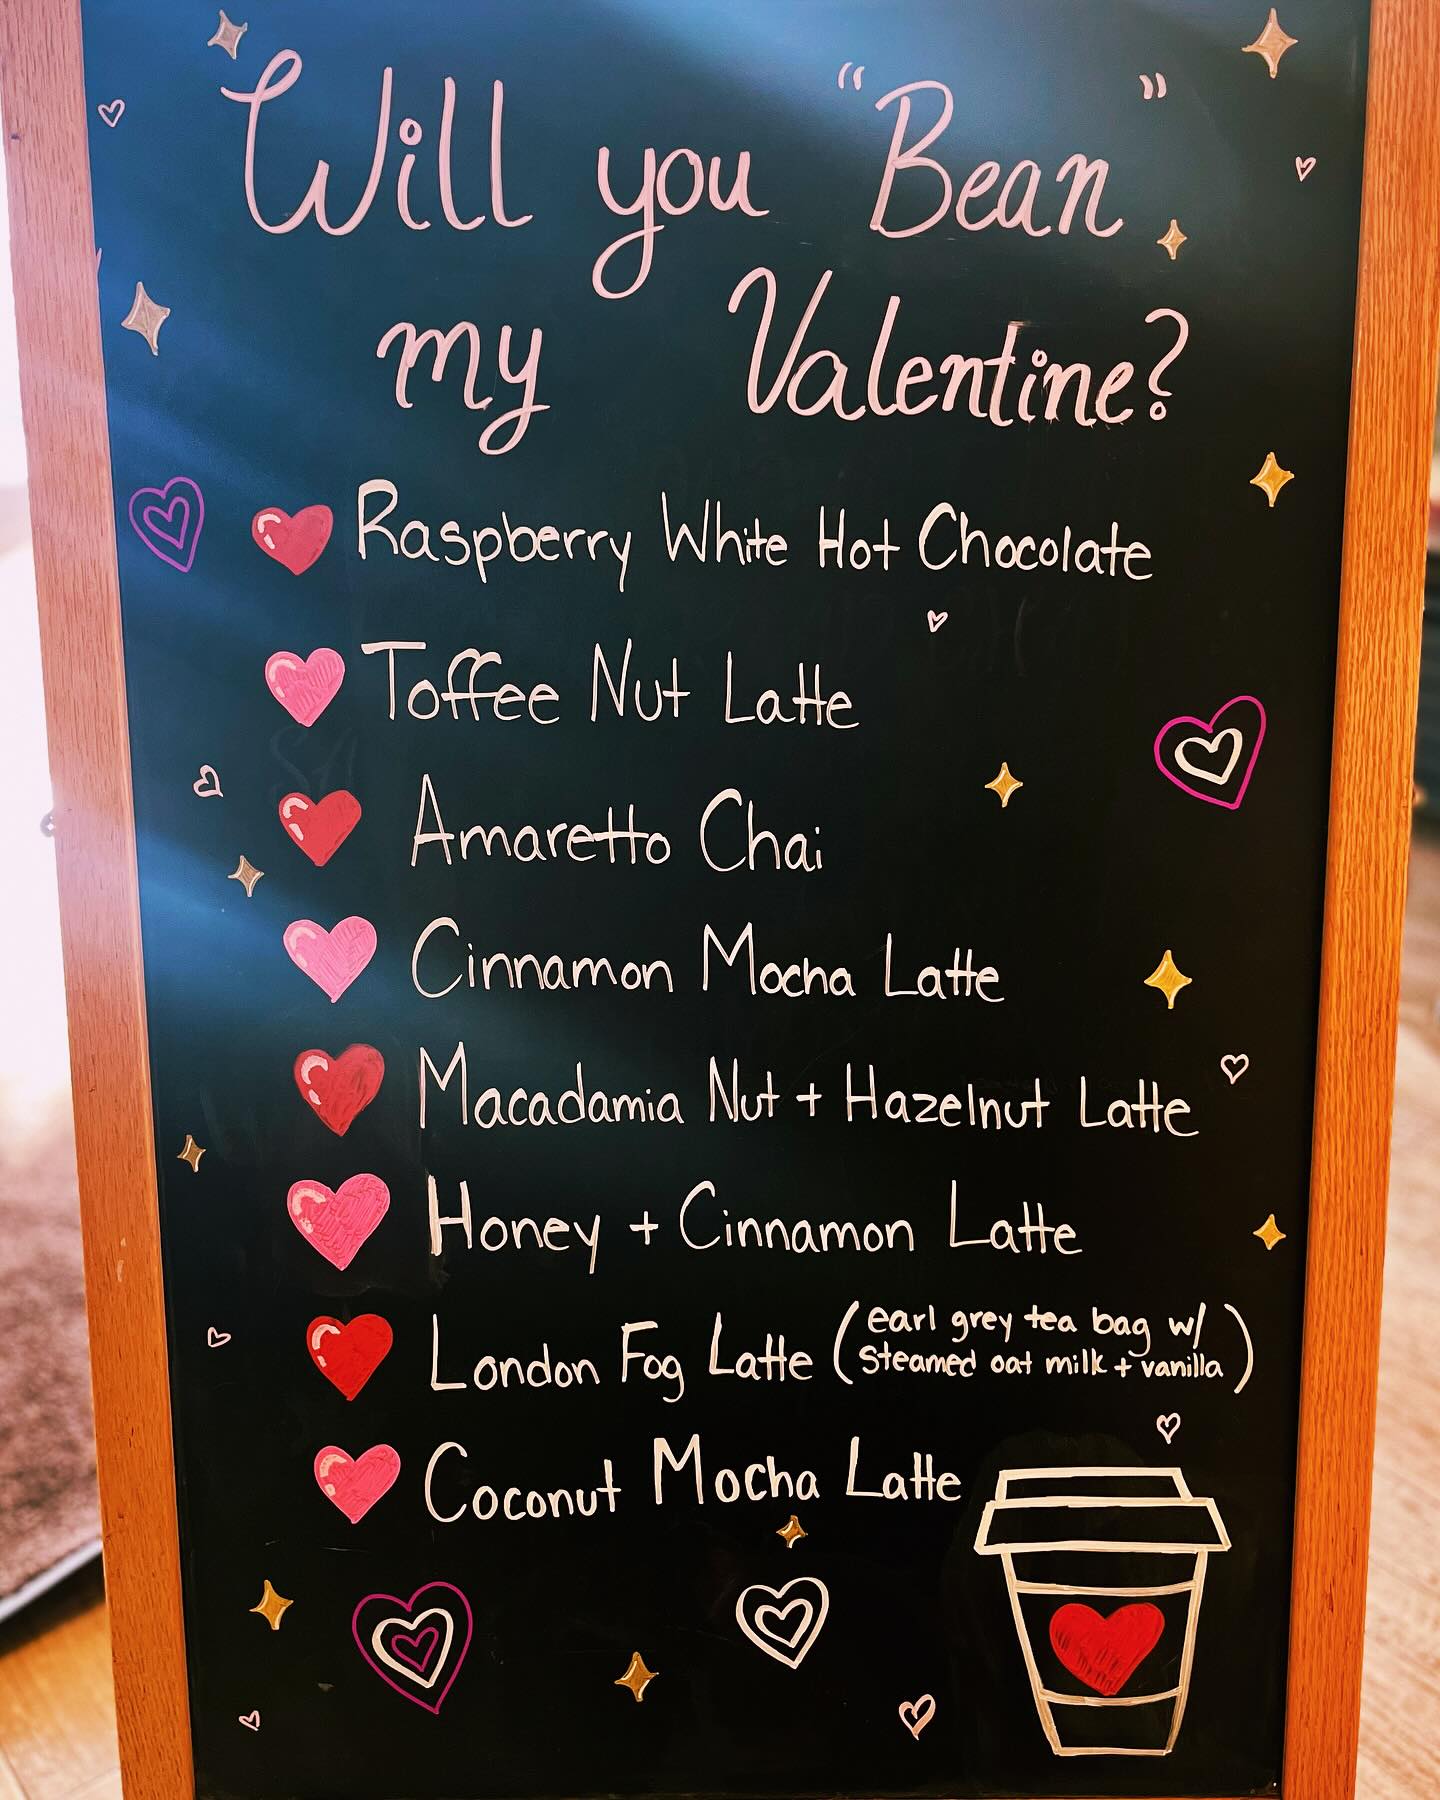 Will you "Bean"
my Valentine?
Raspberry White Hot Chocolate
Toffee Nut Latte
Amaretto Chai
Cinnamon Mocha Latte
Macadamia Nut + Hazelnut Latte
Honey + Cinnamon Latte
London Fog Latte (earl grey tea bag w/
steamed oat milk + vanilla)
Coconut Mocha Latte